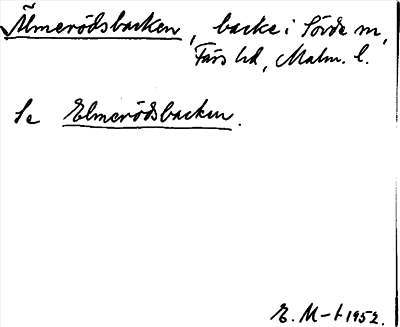 Älmerödsbacken, backe i Sövde sn,
Färs hd, Malm. l.
Se Elmerödsbacken.
E. M-t 1952.